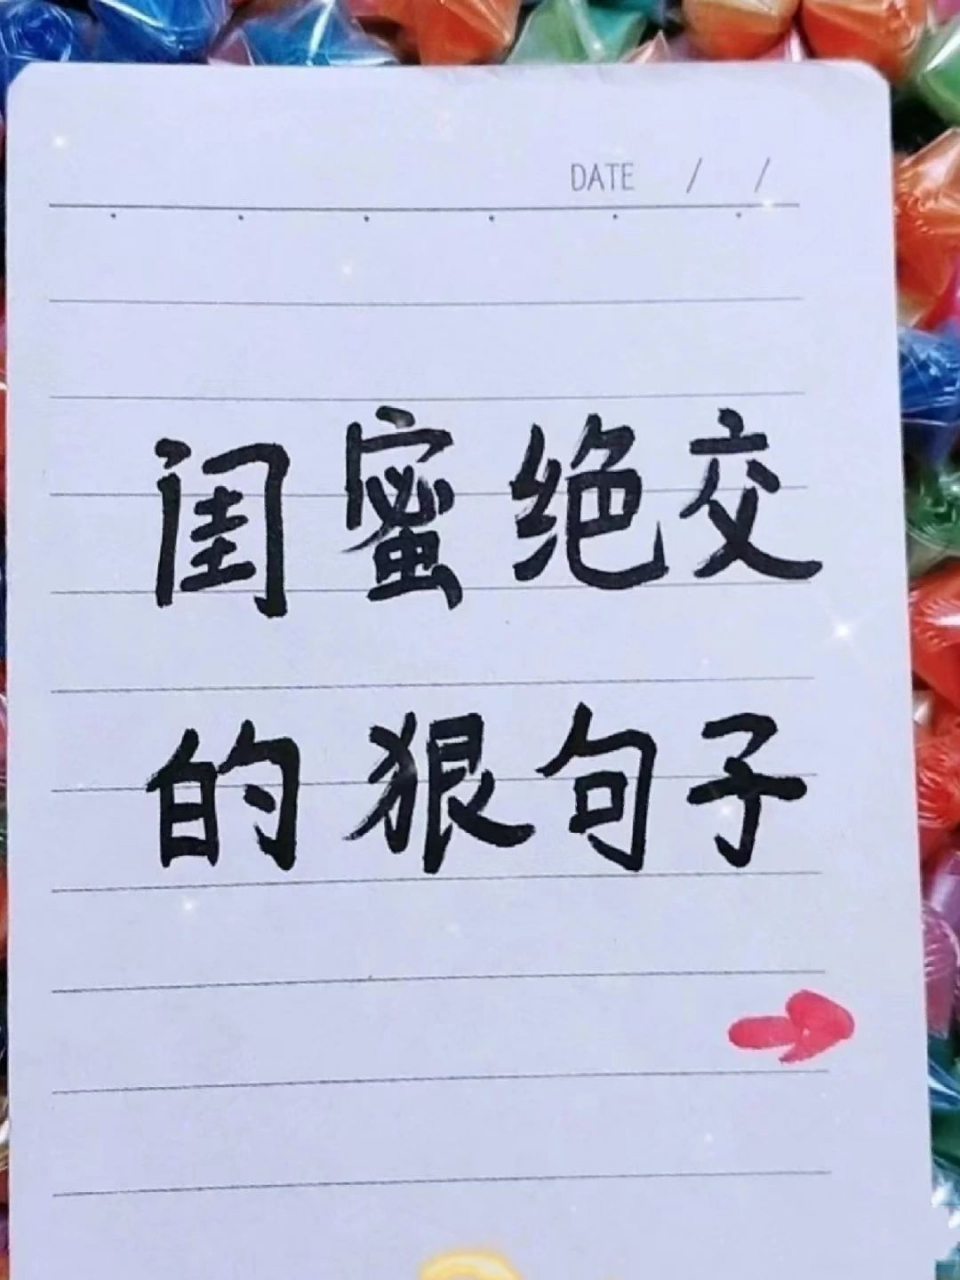 DATE / /
闺蜜绝交
的狠句子